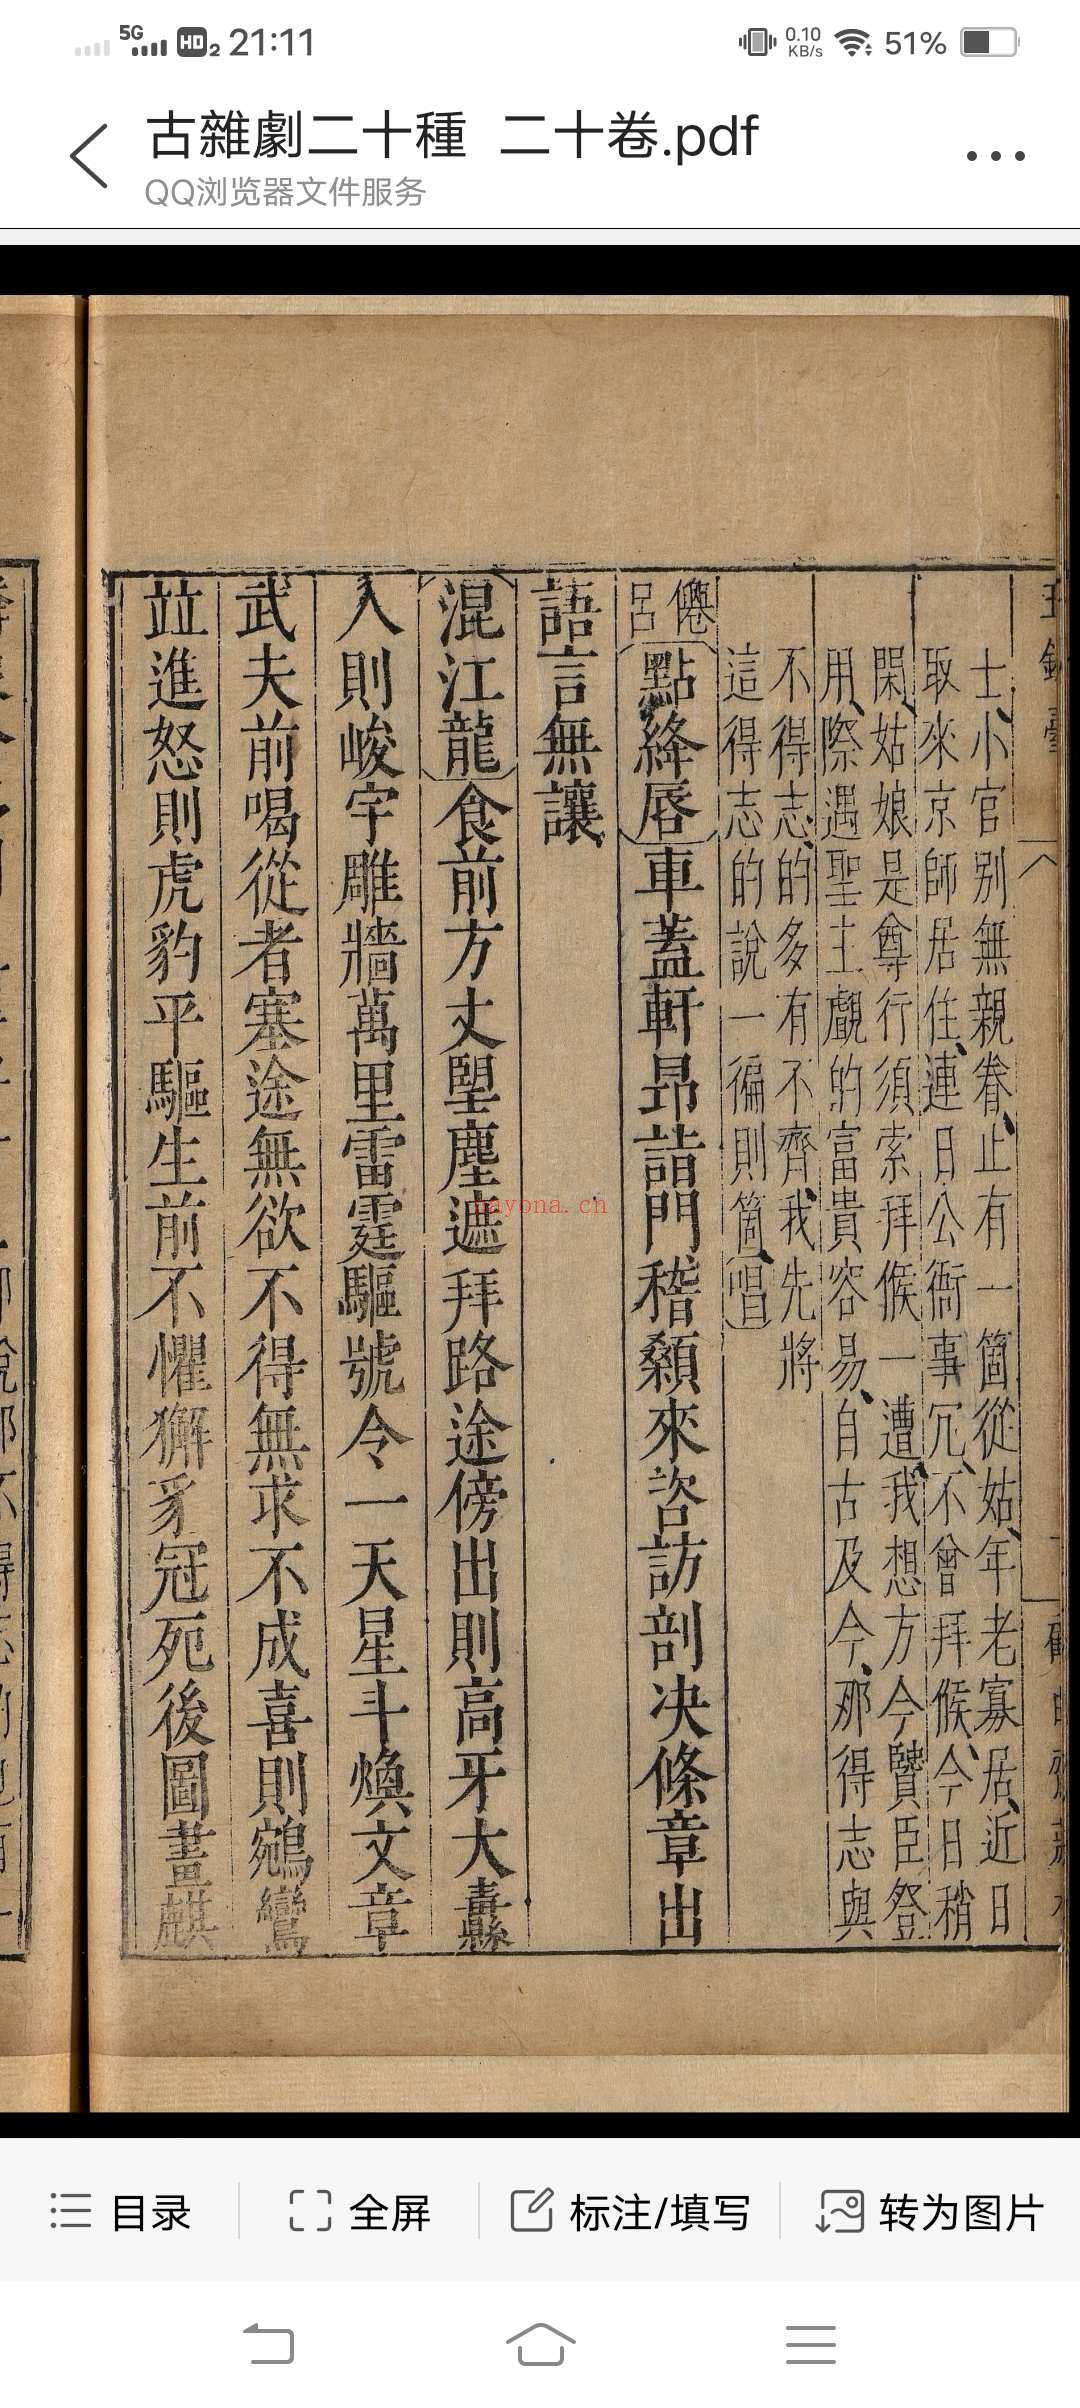 5G HD2 21:11 0.10 KB/s 51%
古雜劇二十種 二十卷.pdf
QQ浏览器文件服务
士、小官别無親眷、止有一箇從姑、年老寡居、近日
取來京師居住、連日公衙事冗、不曾拜候、今日稍
閑、姑娘是尊行須索拜候一遭、我想方今賢臣登
用、際遇聖主、覷的富貴容易、自古及今、那得志與
不得志、的多有不齊、我先將
這得志的說一徧則箇、唱
僊呂 點絳唇 車蓋軒昂詣門稽顙來咨訪剖决條章出
語言無讓
混江龍 食前方丈堲塵遮拜路途傍出則高牙大纛
入則峻宇雕牆萬里雷霆驅號令一天星斗煥文章
武夫前喝從者塞途無欲不得無求不成喜則鵷鸞
竝進怒則虎豹平驅生前不懼獬豸冠死後圖畫麒
nayona.cn
目录 全屏 标注/填写 转为图片